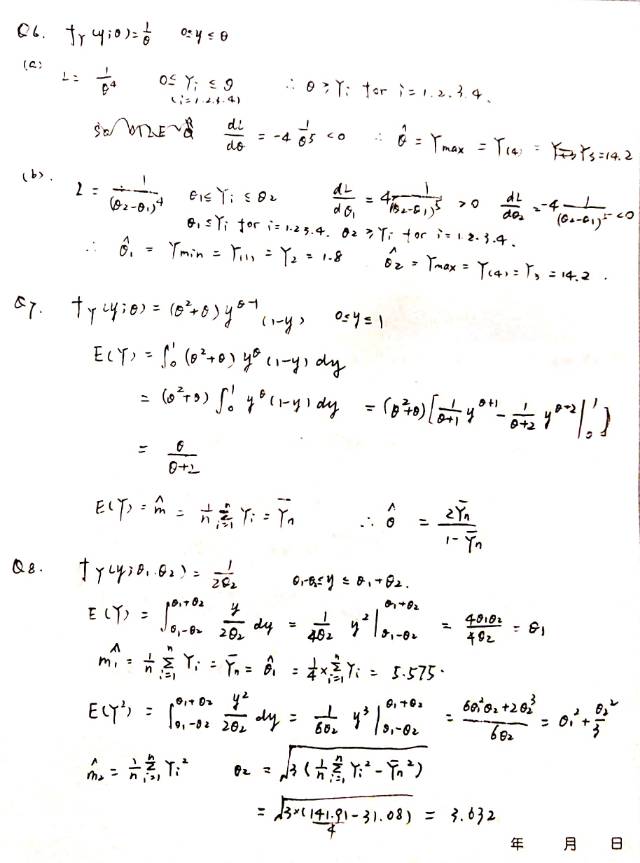 Q6. f_Y(y;θ)=1/θ 0≤y≤θ
(a) L= 1/θ^4 0≤Yi≤θ (i=1.2.3.4) ∴ θ≥Yi for i=1.2.3.4.
dL/dθ = -4 1/θ^5 <0 ∴ θ̂ = Ymax = Y(4) = Y3=14.2
(b). L = 1/(θ2-θ1)^4 θ1≤Yi≤θ2 dL/dθ1 = 4 1/(θ2-θ1)^5 >0 dL/dθ2 = -4 1/(θ2-θ1)^5 <0
θ1≤Yi for i=1.2.3.4. θ2≥Yi for i=1.2.3.4.
∴ θ̂1 = Ymin = Y(1) = Y2 = 1.8 θ̂2 = Ymax = Y(4) = Y3 = 14.2.
Q7. f_Y(y;θ) = (θ²+θ) y^(θ-1) (1-y) 0≤y≤1
E(Y) = ∫₀¹ (θ²+θ) y^θ (1-y) dy
= (θ²+θ) ∫₀¹ y^θ (1-y) dy = (θ²+θ) [1/(θ+1) y^(θ+1) - 1/(θ+2) y^(θ+2) |₀¹]
= θ/(θ+2)
E(Y) = m̂ = 1/n Σ_{i=1}^n Yi = Ȳn ∴ θ̂ = 2Ȳn/(1-Ȳn)
Q8. f_Y(y;θ1.θ2) = 1/2θ2 θ1-θ2≤y≤θ1+θ2.
E(Y) = ∫_{θ1-θ2}^{θ1+θ2} y/2θ2 dy = 1/4θ2 y² |_{θ1-θ2}^{θ1+θ2} = 4θ1θ2/4θ2 = θ1
m̂1 = 1/n Σ_{i=1}^n Yi = Ȳn = θ̂1 = 1/4 × Σ_{i=1}^n Yi = 5.575.
E(Y²) = ∫_{θ1-θ2}^{θ1+θ2} y²/2θ2 dy = 1/6θ2 y³ |_{θ1-θ2}^{θ1+θ2} = (6θ1²θ2+2θ2³)/6θ2 = θ1²+θ2²/3
m̂2 = 1/n Σ_{i=1}^n Yi² θ2 = √(3(1/n Σ_{i=1}^n Yi² - Ȳn²))
= √(3×(141.91/4 - 31.08)) = 3.632
年 月 日